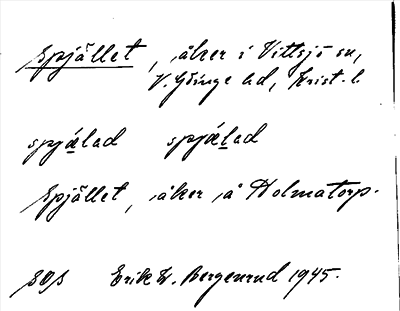 Spjället, åker i Vittsjö sn,
V. Göinge hd, Krist. l.
spjælad spjælad
Spjället, åker å Holmatorp.
Erik W. Bergenrud 1945.